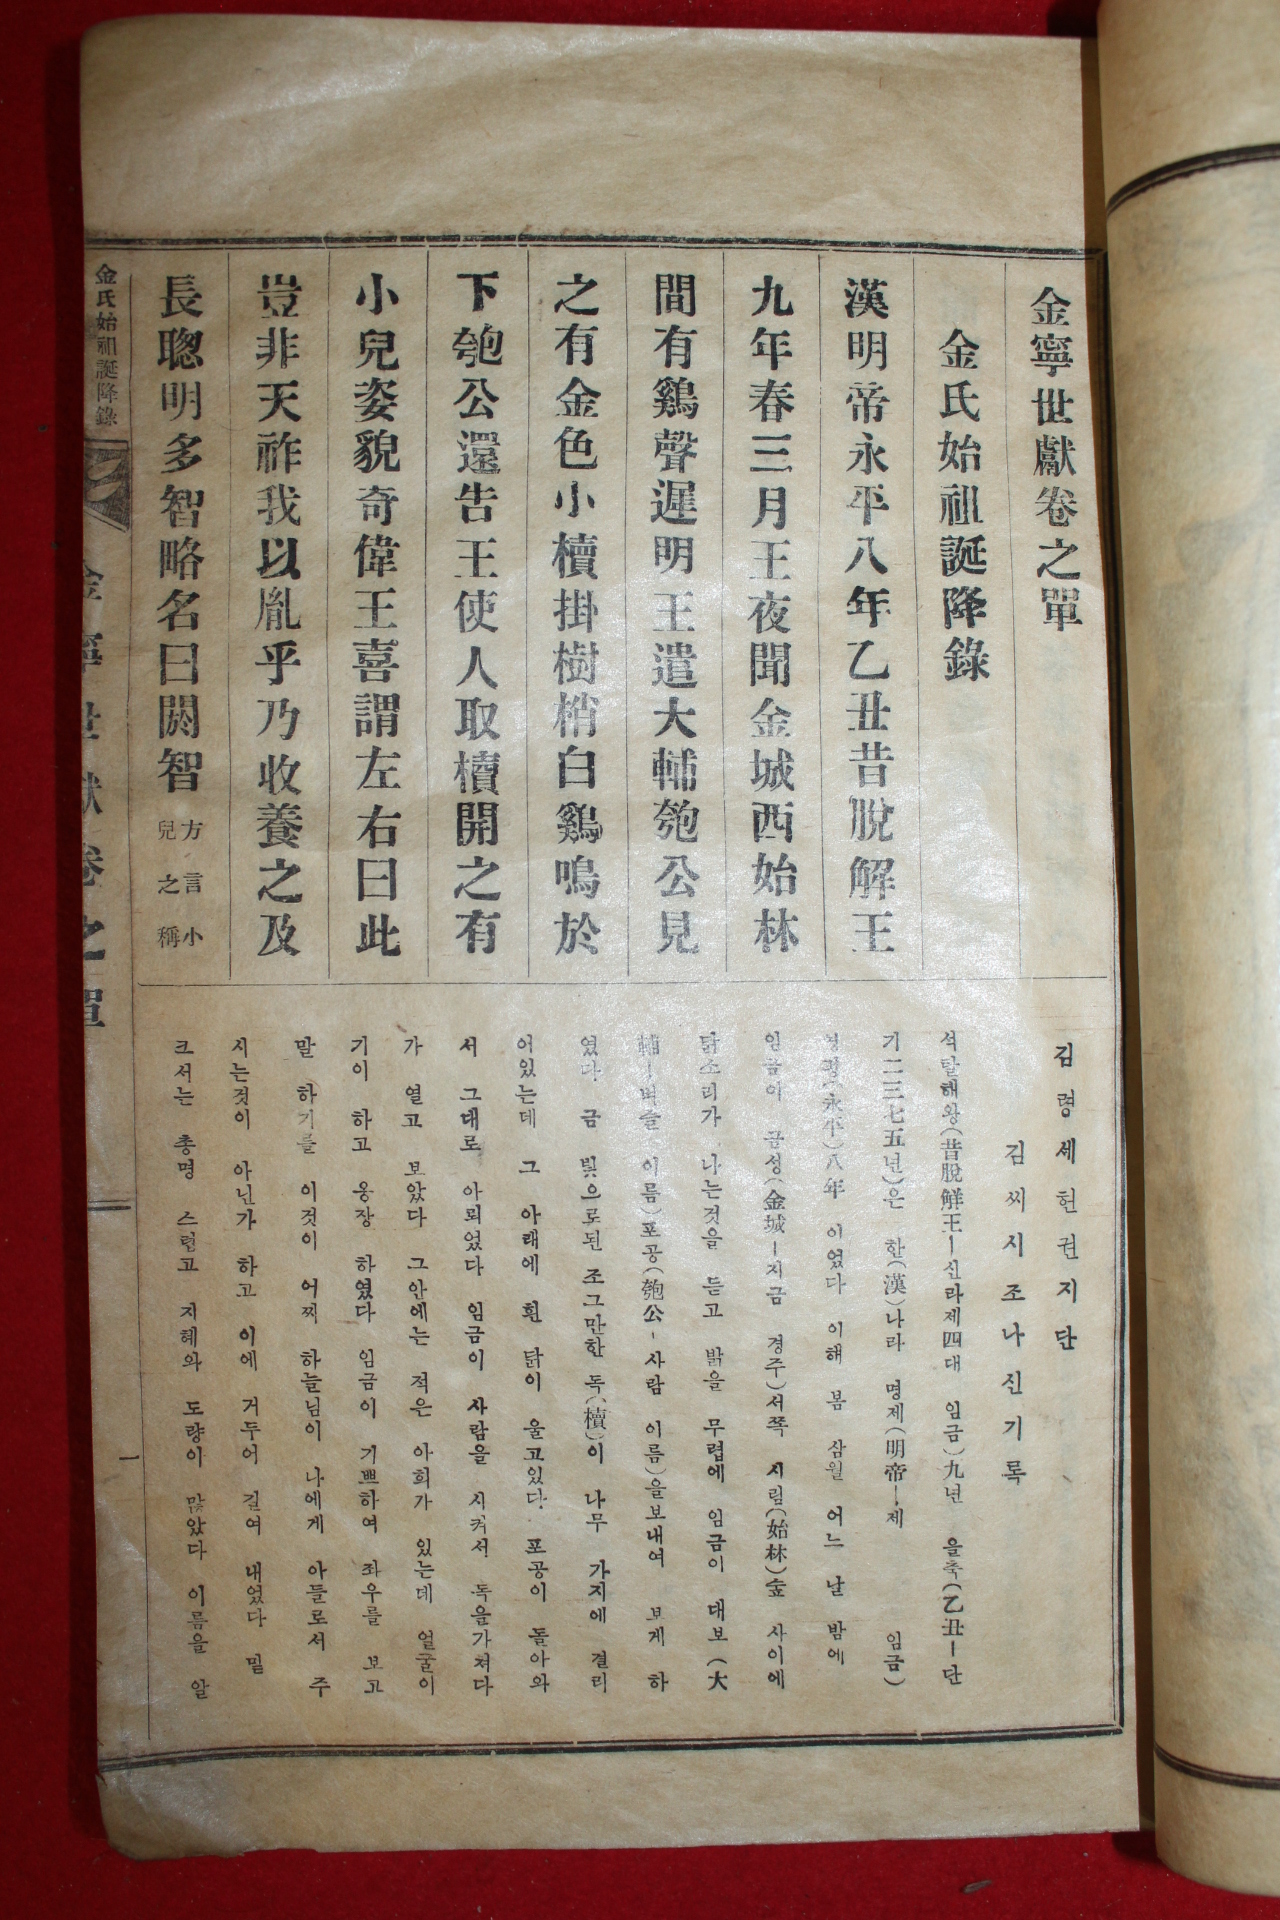 金寧世獻卷之單
金氏始祖誕降錄
漢明帝永平八年乙丑昔脫解王
九年春三月王夜聞金城西始林
間有鷄聲遲明王遣大輔匏公見
之有金色小櫝掛樹梢白鷄鳴於
下匏公還告王使人取櫝開之有
小兒姿貌奇偉王喜謂左右曰此
豈非天祚我以胤乎乃收養之及
長聰明多智略名曰閼智方言小兒之稱
김령세헌권지단
김씨시조나신기록
석탈해왕(昔脫解王ー신라제四대 임금)九년 을축(乙丑ー단
기二三七五년)은 한(漢)나라 명제(明帝ー제 임금)
영평(永平)八年 이였다 이해 봄 삼월 어느 날 밤에
임금이 금성(金城ー지금 경주)서쪽 시림(始林)숲 사이에
닭소리가 나는것을 듣고 밝을 무렵에 임금이 대보(大
輔ー벼슬 이름)포공(匏公ー사람 이름)을보내여 보게 하
였다 금 빛으로된 조그만한 독(櫝)이 나무 가지에 결리
어있는데 그 아래에 흰 닭이 울고있다 포공이 돌아와
서 그대로 아뢰었다 임금이 사람을 시켜서 독을가져다
가 열고 보았다 그안에는 적은 아희가 있는데 얼굴이
기이 하고 웅장 하였다 임금이 기쁘하여 좌우를 보고
말 하기를 이것이 어찌 하늘님이 나에게 아들로서 주
시는것이 아닌가 하고 이에 거두어 길여 내었다 및
크서는 총명 스럽고 지혜와 도량이 많았다 이름을 알
金氏始祖誕降錄
金寧世獻卷之單
一